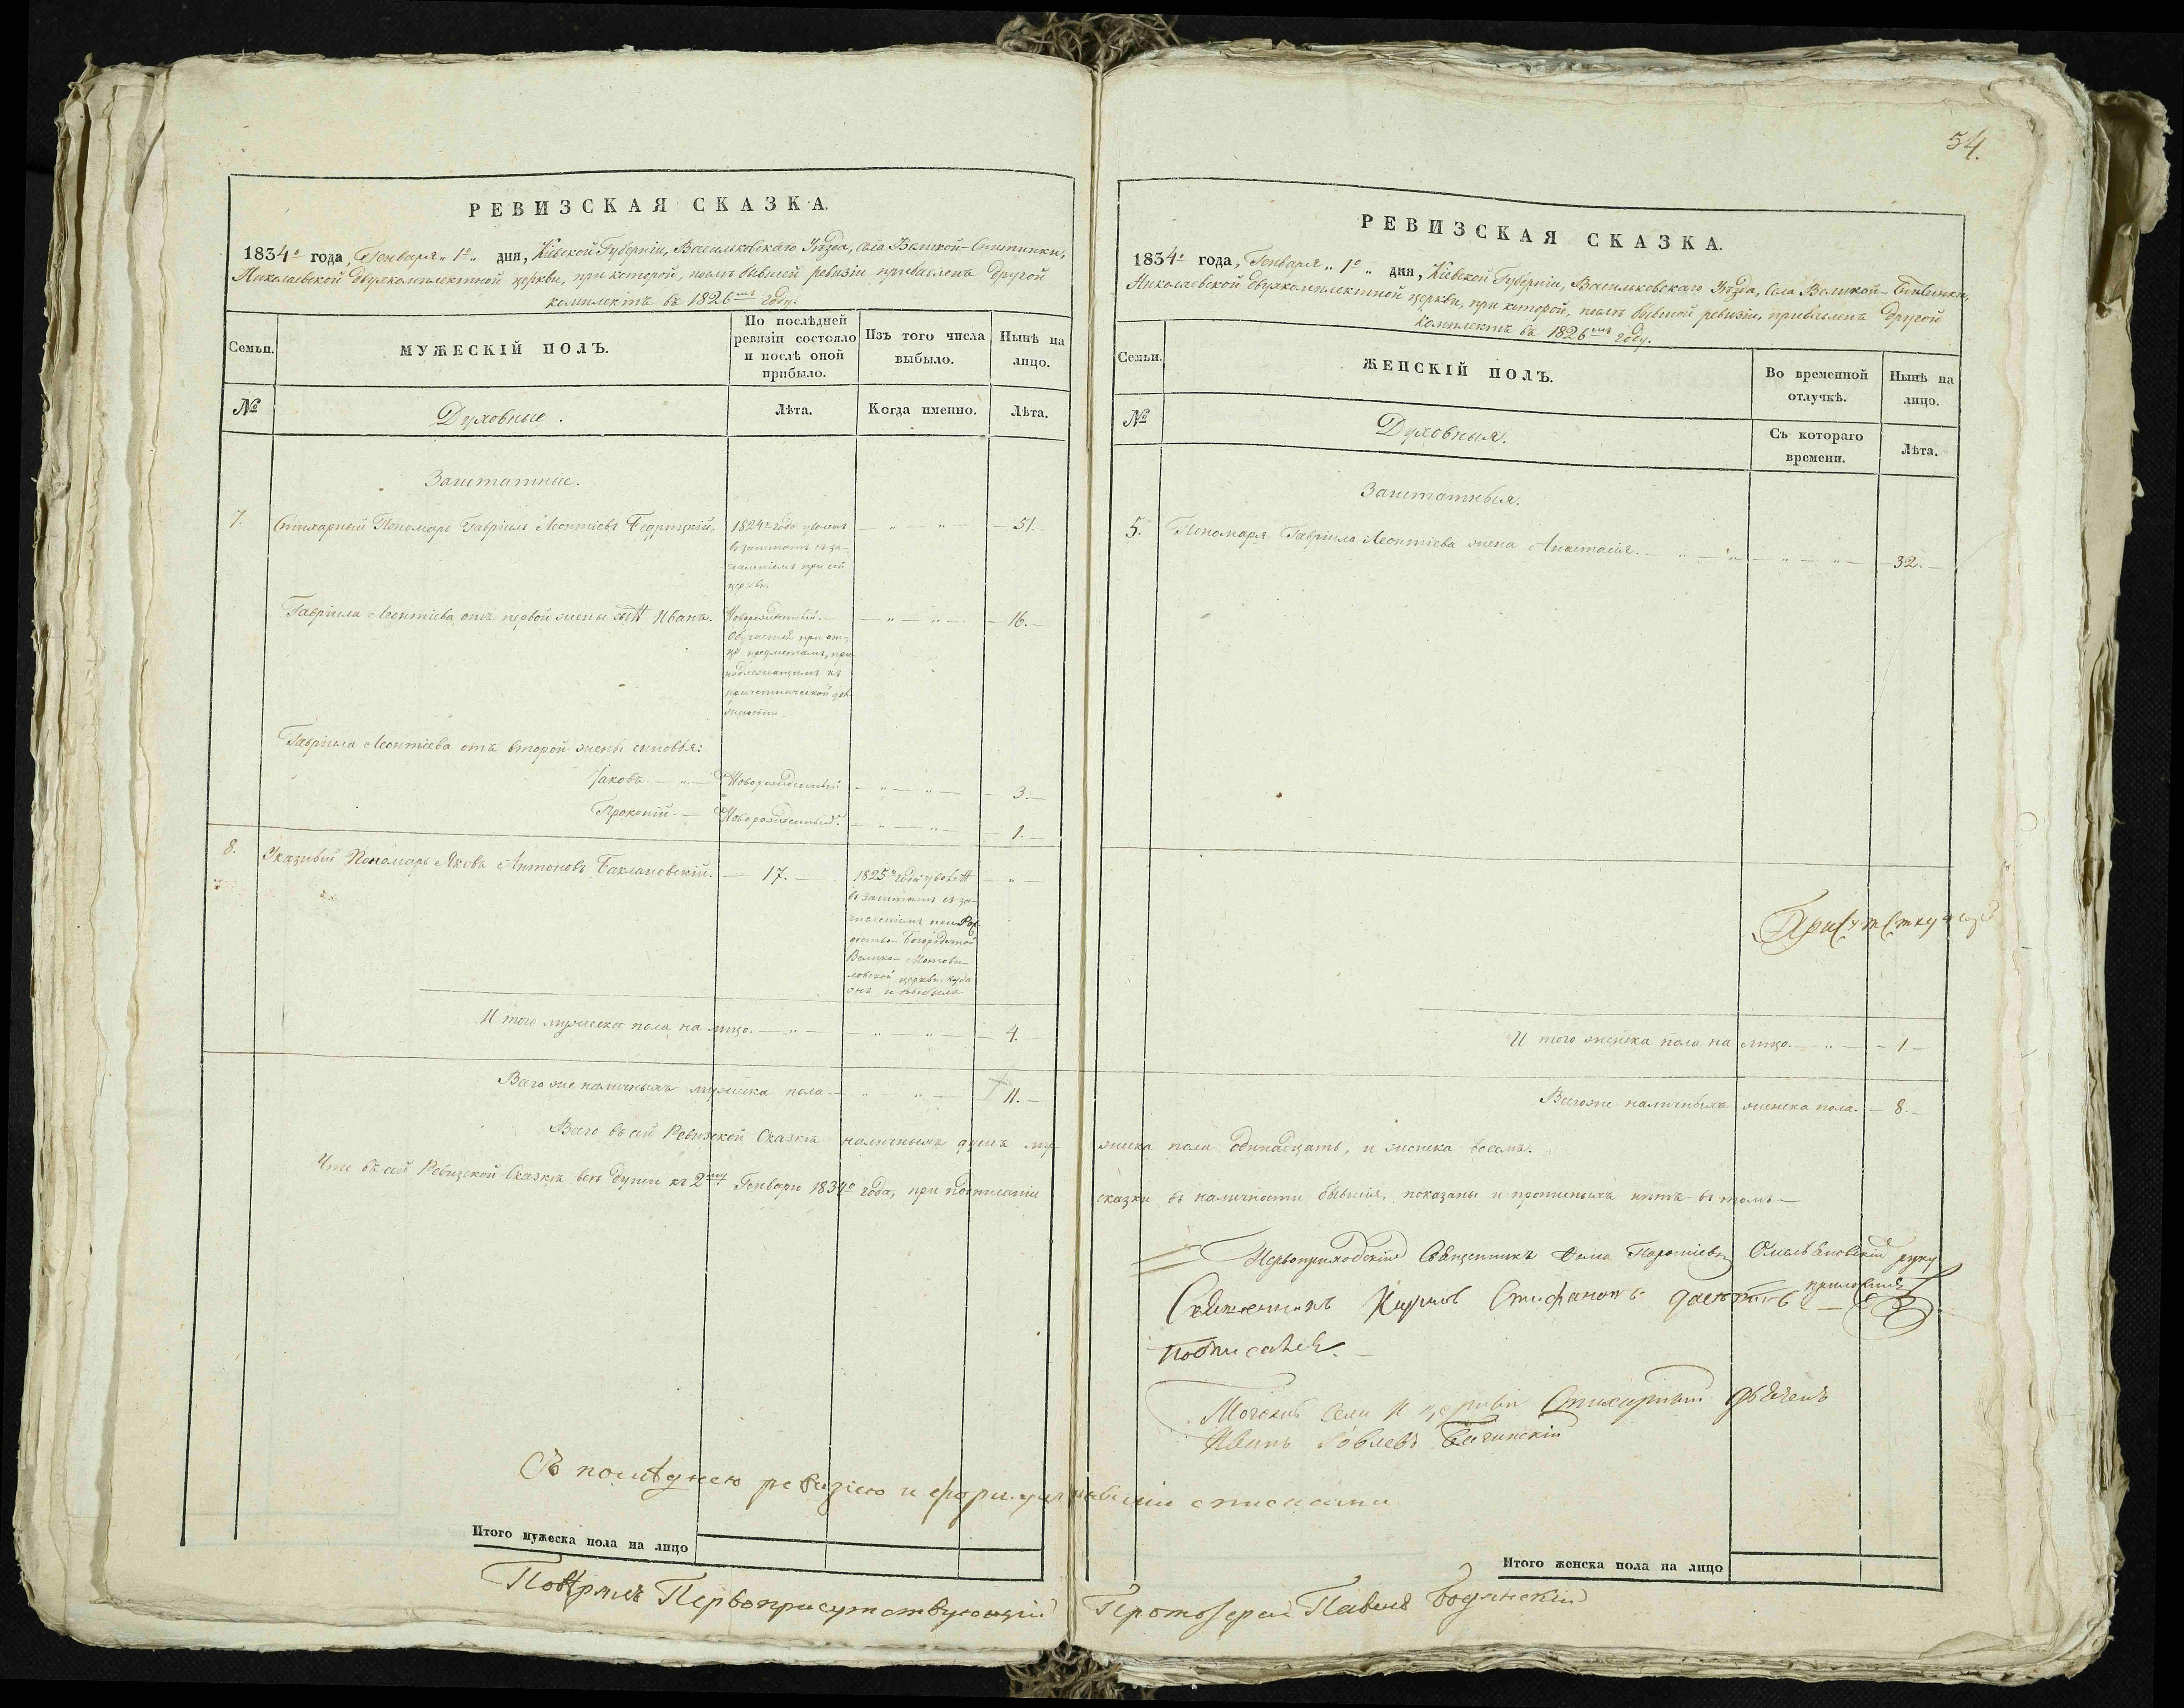 РЕВИЗСКАЯ СКАЗКА.
1834º года, Генваря „ 1º „ дня, Кіевской Губерніи, Васильковскаго Уѣзда, села Великой-
Николаевской двухкомплектной церкви, при которой, послѣ бывшей ревизіи прибавленъ другой
комплектъ въ 1826мъ году.
Семьи.
МУЖЕСКІЙ ПОЛЪ.
По послѣдней ревизіи состояло и послѣ оной прибыло.
Изъ того числа выбыло.
Нынѣ на лицо.
№
Духовные.
Лѣта.
Когда именно.
Лѣта.
Заштатные.
7. Стихарный Пономарь Гавріилъ Леонтіевъ 1824º года уволенъ — „ — „ — 51. —
въ заштатъ съ за-
численіемъ при сей
церкви.
Гавріила Леонтіева отъ первой жены сынъ Иванъ. Новорожденный. — „ — „ — 16. —
Обучается при от-
цѣ предметамъ, при-
надлежащимъ къ
причетнической дол-
жности.
Гавріила Леонтіева отъ второй жены сыновья:
Іаковъ. — „ — Новорожденный — „ — „ — 3. —
Прокопій. — Новорожденный. — „ — „ — 1. —
8. Указный Пономарь Яковъ Антоновъ Баклановскій. — 17. — 1825º года уволенъ — „ —
въ заштатъ съ за-
численіемъ при Рож-
дество-Богородичной
Велико-Мотови-
ловской церкви, куда
онъ и выбылъ
И того мужеска пола на лицо. — „ — „ — „ — 4. —
Всего же наличныхъ мужеска пола — „ — „ — 11. —
Всего въ сей Ревизской Сказкѣ наличныхъ душъ му-
Что въ сей Ревизской Сказкѣ всѣ души къ 2му Генваря 1834º года, при подписаніи
Съ послѣднею ревизіею и формулярными списками
Итого мужеска пола на лицо
Повѣрялъ Первоприсутствующій
54.
РЕВИЗСКАЯ СКАЗКА.
1834º года, Генваря „ 1º „ дня, Кіевской Губерніи, Васильковскаго Уѣзда, Села Великой-
Николаевской двухкомплектной церкви, при которой, послѣ бывшей ревизіи, прибавленъ другой
комплектъ въ 1826мъ году.
Семьи.
ЖЕНСКІЙ ПОЛЪ.
Во временной отлучкѣ.
Нынѣ на лицо.
№
Духовныя.
Съ котораго времени.
Лѣта.
Заштатныя.
5. Пономаря Гавріила Леонтіева жена Анастасія. — „ — „ — „ — „ — 32. —
Присутствующій
И того женска пола на лицо. — „ — 1. —
Всего же наличныхъ женска пола. — 8. —
жеска пола одинадцать, и женска восемь.
сказки въ наличности бывшія, показаны и прописныхъ нѣтъ въ томъ —
Первоприходскій Священникъ Омельяновскій руку
приложилъ
Священникъ Кирилъ Стефановъ
подписался. —
Тоежъ села и церкви Стихарный Дьячекъ
Иванъ
Протоіерей Павелъ
Итого женска пола на лицо